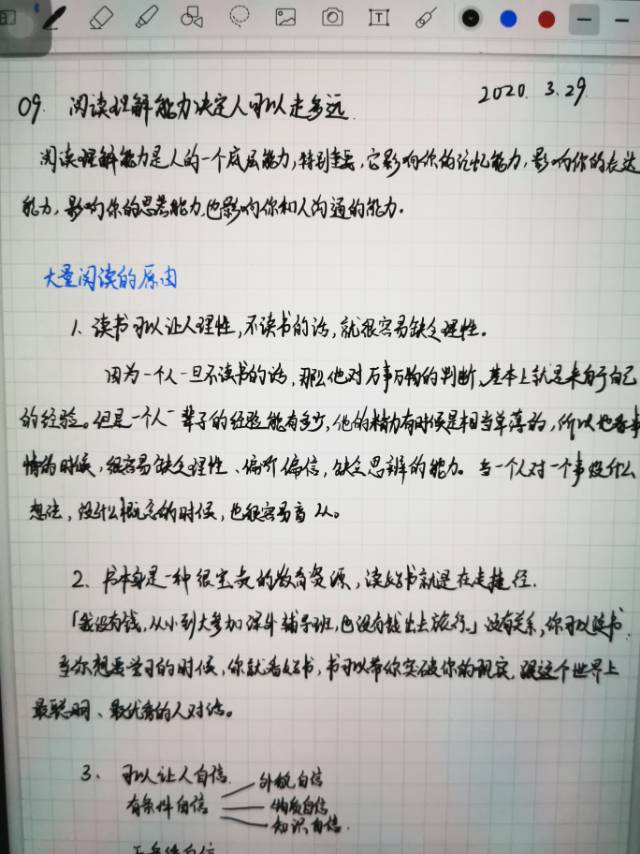 09. 阅读理解能力决定人可以走多远
2020. 3. 29
阅读理解能力是人的一个底层能力,特别重要,它影响你的记忆能力,影响你的表达
能力,影响你的思考能力,也影响你和人沟通的能力.
大量阅读的原因
1. 读书可以让人理性,不读书的话,就很容易缺乏理性.
因为一个人一旦不读书的话,那么他对万事万物的判断,基本上就是来自于自己
的经验。但是一个人一辈子的经验能有多少,他的精力有时候是相当单薄的,所以他看事
情的时候,很容易缺乏理性、偏听偏信,缺乏思辨的能力。当一个人对一个事没什么
想法,没什么概念的时候,也很容易盲从。
2、书本身是一种很宝贵的教育资源,读好书就是在走捷径.
「我没有钱,从小到大参加课外辅导班,也没有钱出去旅行」没有关系,你可以读书
当你想要学习的时候,你就看好书,书可以带你突破你的现实,跟这个世界上
最聪明、最优秀的人对话。
3、可以让人自信
外貌自信
有条件自信
物质自信
知识自信.